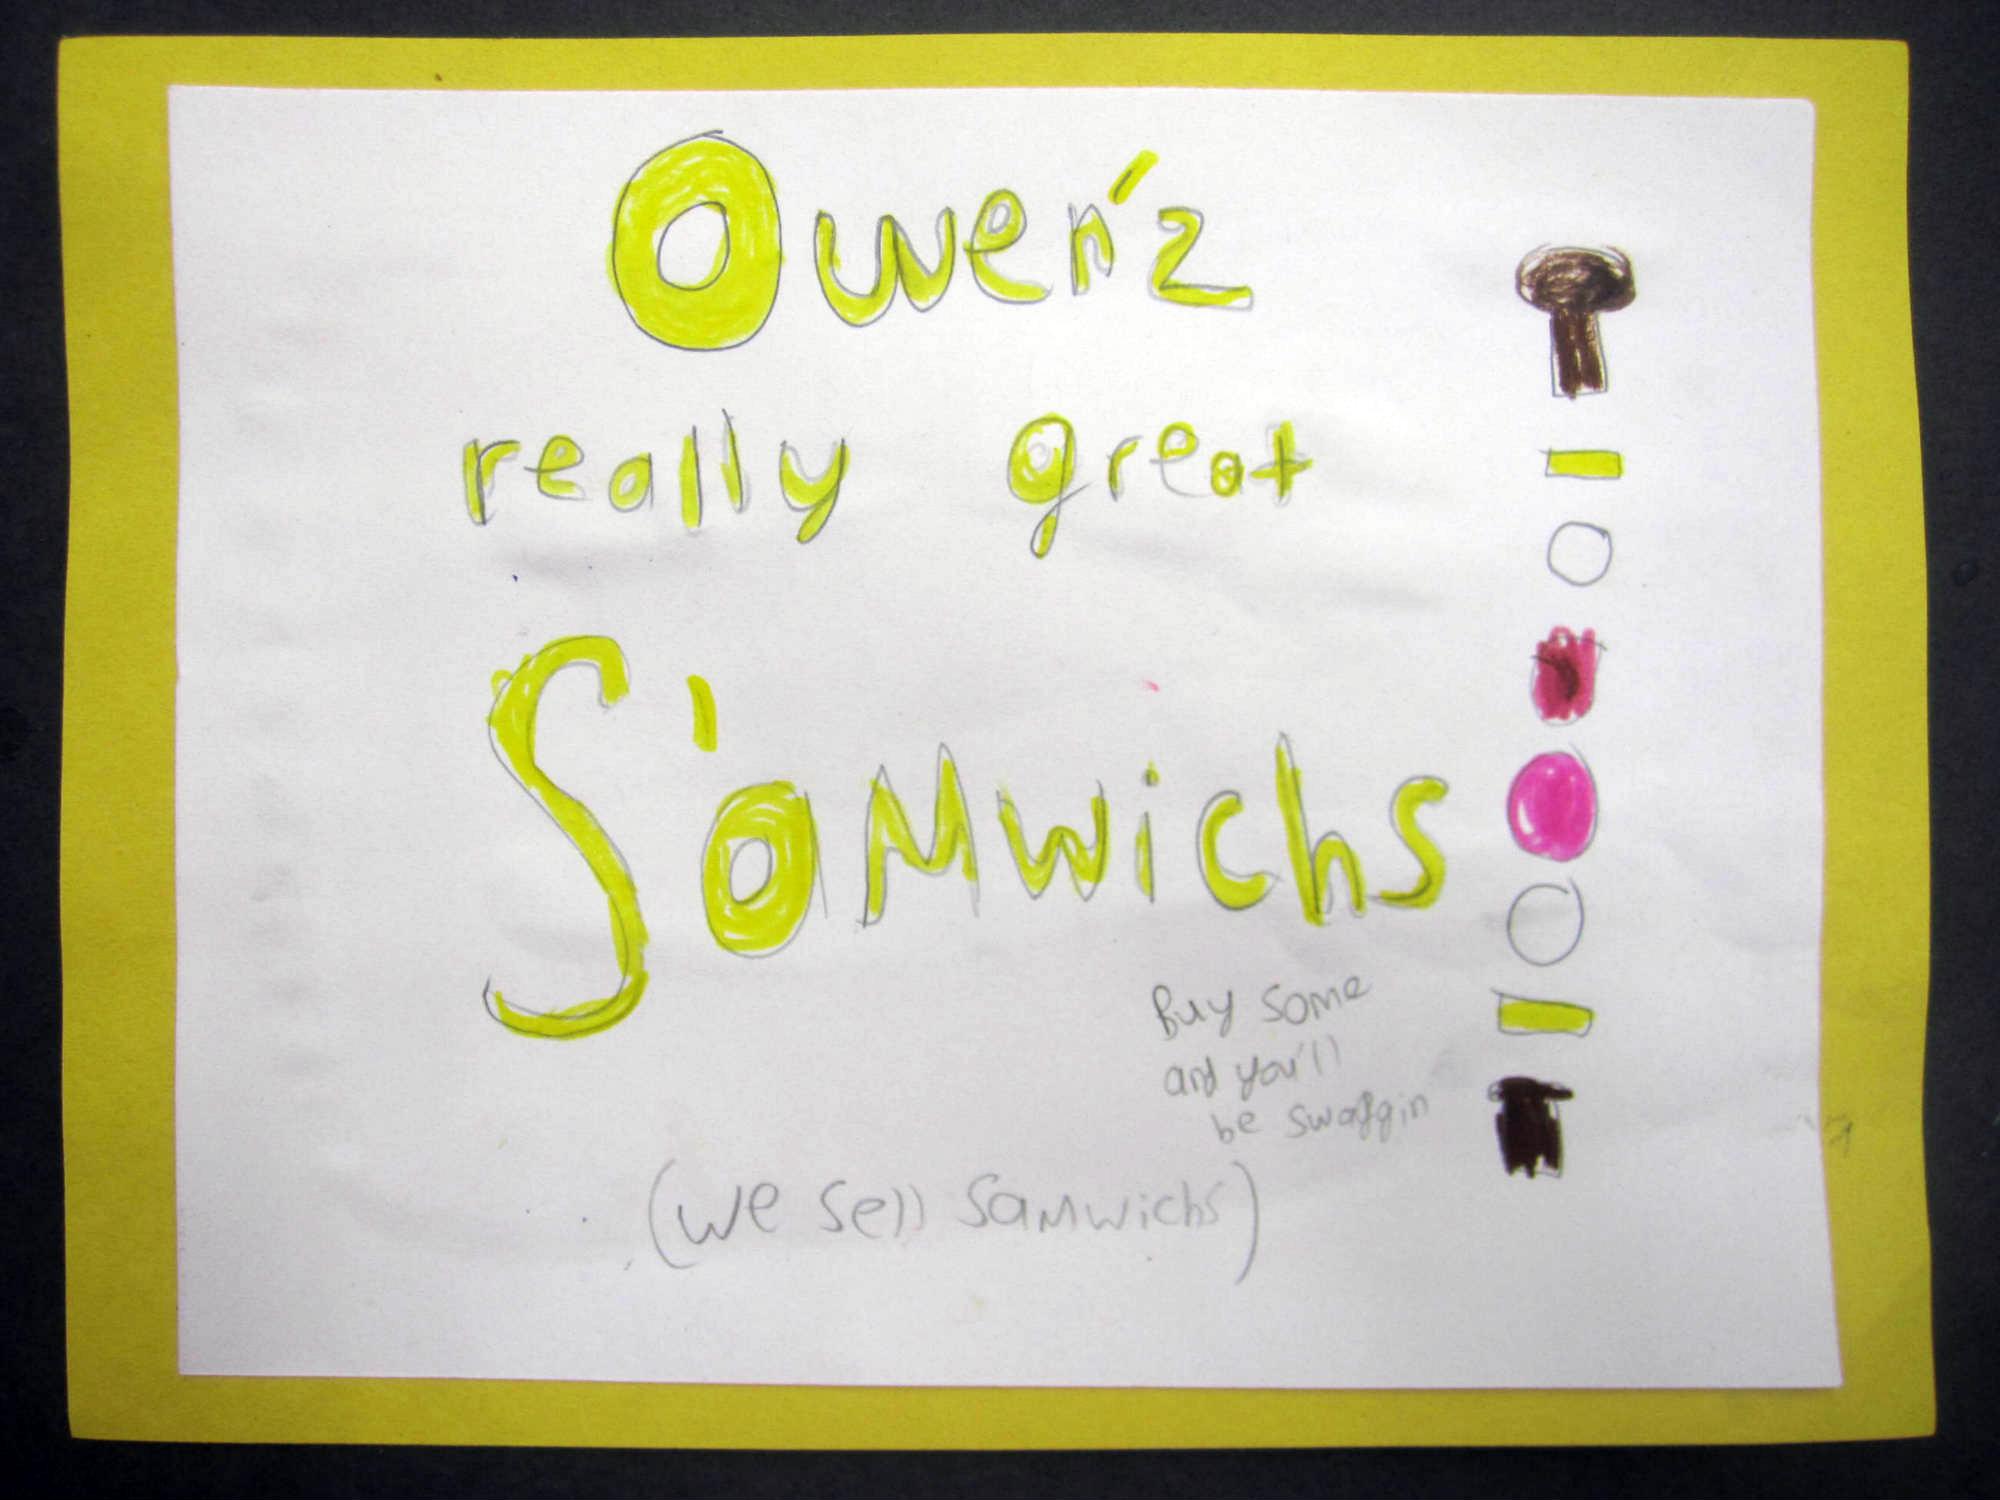 Owen'z
really great
S'amwichs
Buy some
and you'll
be swaggin
(we sell samwichs)